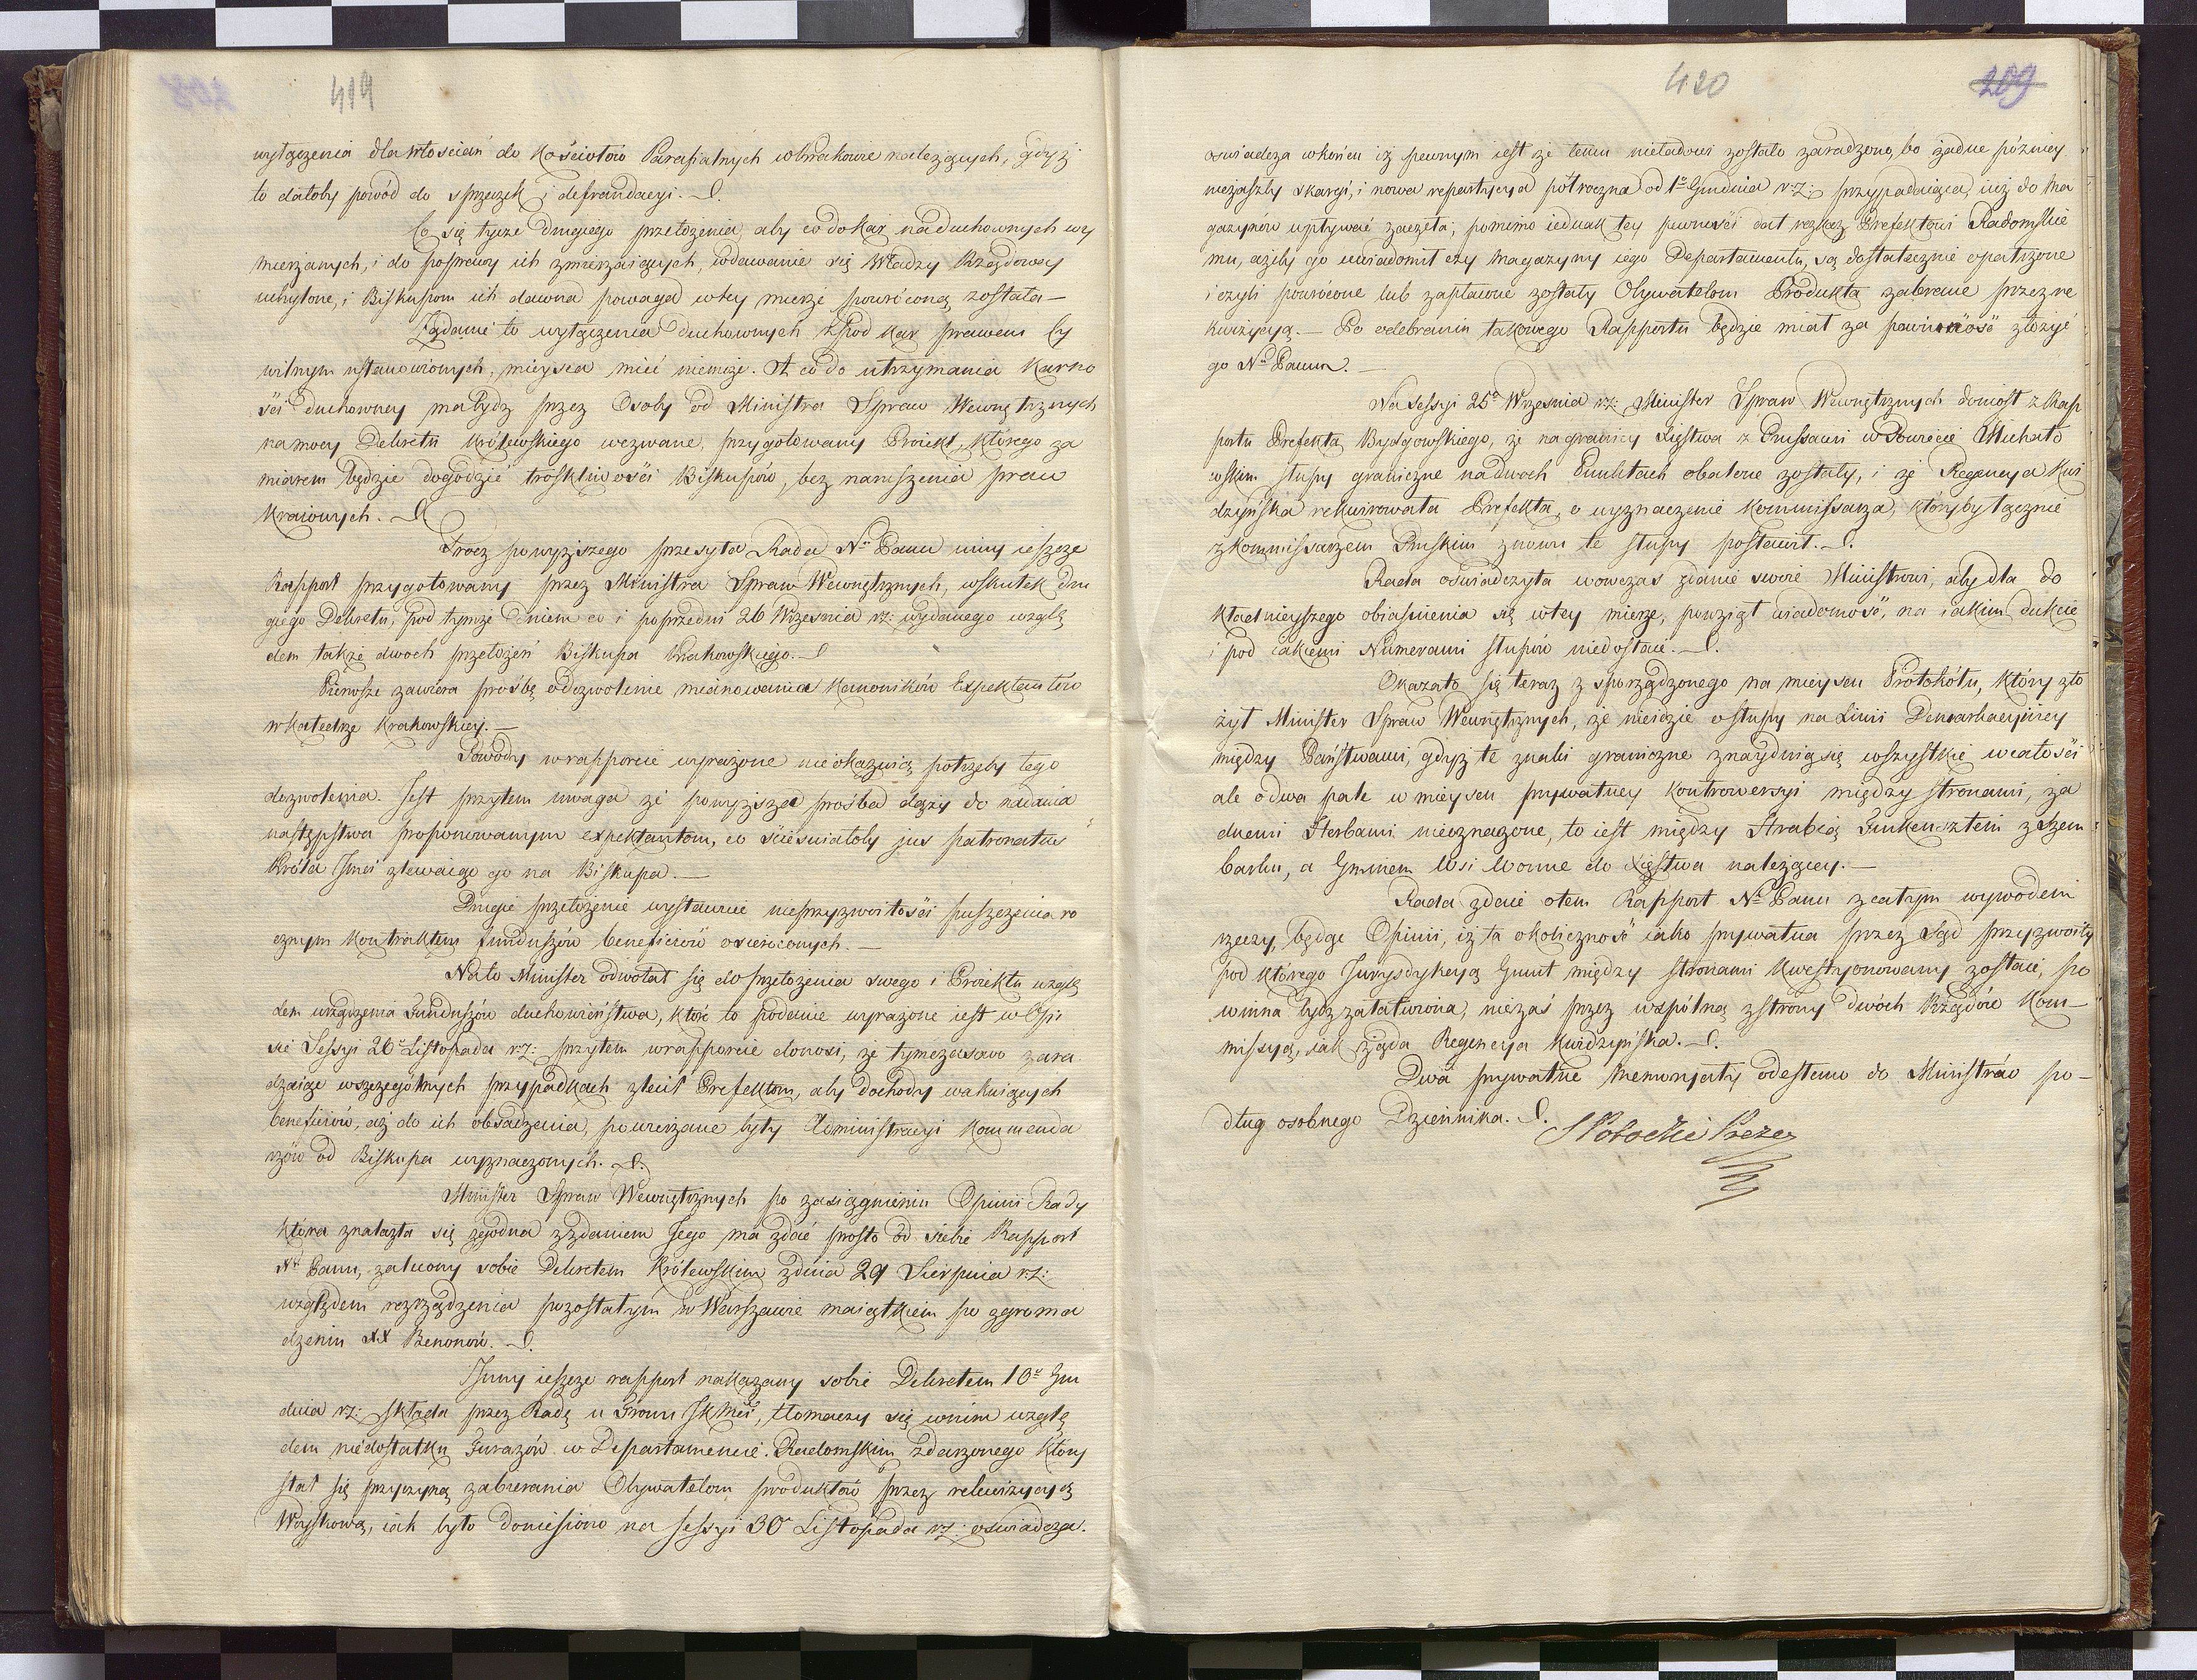 419
wyłączenia dla Włościan do Kościołów Parafialnych w obrakowie należących, gdyż
to dałoby powód do sprzeczek i defraudacyi.
Co się tycze drugiego przełożenia aby co do kar na duchownych wy
mierzanych, i do poprawy ich zmierzaiących, wdawanie się Władzy Rządowey
uchylone, i Biskupom ich dawna powaga w tey mierze powróconą została —
Żądanie to wyłączenia duchownych z pod kar prawem Cy
wilnym ustanowionych, mieysca mieć niemoże. A co do utrzymania Karno
ści duchowney ma bydz przez Osoby od Ministra Spraw Wewnętrznych
na mocy Dekretu Królewskiego wezwane, przygotowany Proiekt, którego za
miarem będzie dogodzić troskliwości Biskupów, bez naruszenia praw
Kraiowych.
Procz powyższego przesyła Rada Nu Panu inny ieszcze
Rapport przygotowany przez Ministra Spraw Wewnętrznych, wskutek dru
giego Dekretu, pod tymże dniem co i poprzedni 26 Września r.z: wydanego wzglę
dem także dwoch przełożeń Biskupa Krakowskiego.
Pierwsze zawiera prośbę odozwolenie mianowania Kanoników Expektantów
w Katedrze Krakowskiey. —
Powody w rapporcie wyrażone nie okazuią potrzeby tego
dozwolenia. Jest przytem uwaga że powyższa prośba dąży do nadania
następstwa proponowanym expektantom, co ścieśniałoby jus patronatus
Króla Jmci zlewaiąc go na Biskupa. —
Drugie przełożenie wystawuie nieprzyzwoitości puszczenia ro
cznym kontraktem funduszów beneficiów osieroconych. —
Na to Minister odwołał się do przełożenia swego i Proiektu wzglę
dem urządzenia Funduszów duchowieństwa, które to podanie wyrażone iest w Opi
sie Sessyi 26 Listopada r.z: przytem w rapporcie donosi, że tymczasowo zara
dzaiąc w szczególnych przypadkach zlecił Prefektom, aby dochody wakuiących
beneficiów, aż do ich obsadzenia, powierzane były Administracyi Kommenda
rzów od Biskupa wyznaczonych.
Minister Spraw Wewnętrznych po zasiągnieniu Opinii Rady
która znalazła się zgodna z zdaniem Jego ma zdać prosto od siebie Rapport
Nu Panu, zalecony sobie Dekretem Królewskim z dnia 29 Sierpnia r.z:
względem rozrządzenia pozostałym w Warszawie maiątkiem po zgroma
dzeniu XX Benonów.
Inny ieszcze rapport nakazany sobie Dekretem 10 Gru
dnia r.z: składa przez Radę u Tronu JKMci, tłomaczy się w nim wzglę
dem niedostatku Furazów w Departamencie Radomskim zdarzonego który
stał się przyczyną zabierania Obywatelom produktów przez rekwizycyą
Woyskową, iak było doniesiono na sessyi 30 Listopada r.z: oświadcza.
420
209
oświadcza w końcu iż pewnym iest że temu nieładowi zostało zaradzono, bo żadne późniey
niezaszły skargi, i nowa repartycya półroczna od 1o Grudnia r.z: przypadaiąca, iuż do ma
gazynów wpływać zaczęła; pomimo iednak tey pewności dał rozkaz Prefektowi Radomskie
mu, ażeby go uwiadomił czy magazyny iego Departamentu, są dostatecznie opatrzone
i czyli powrócone lub zapłacone zostały Obywatelom Produkta zabrane przez re
kwizycyą. — Po odebraniu takowego Rapportu będzie miał za powinność złożyć
go Nu Panu. —
Na Sessyi 25 Września r.z: Minister Spraw Wewnętrznych doniosł z Rap
portu Prefekta Bydgowskiego, że na granicy Xięstwa z Prussami w Powiecie Michało
wskim słupy graniczne na dwoch Punktach obalone zostały, i że Regencya Kwi
dzyńska rekwirowała Prefekta, o wyznaczenie Kommissarza, któryby łącznie
z Kommissarzem Pruskim znowu te słupy postawił.
Rada oświadczyła wowczas zdanie swoie Ministrowi, aby dla do
kładnieyszego obiaśnienia się w tey mierze, powziął wiadomość, na iakim dukcie
i pod iakiemi Numerami słupów niedostaie.
Okazało się teraz z sporządzonego na mieyscu Protokółu, który zło
żył Minister Spraw Wewnętrznych, że nieidzie o słupy na Linii Demarkacyiney
między Państwami, gdyż te znaki graniczne znayduią się wszystkie w całości
ale o dwa pale w mieyscu prywatney kontrowersyi między stronami, ża
dnemi Herbami nieoznaczone, to iest między Hrabią Finkensztein z Szem
barku, a Gminem Wsi Wonne do Xięstwa należącey. —
Rada zdaie o tem Rapport Nu Panu z całym wywodem
rzeczy, będąc Opinii, iż ta okoliczność iako prywatna przez Sąd przyzwoity
pod którego Jurysdykcyą Grunt między stronami kwestyonowany zostaie, po
winna bydz załatwiona, nie zaś przez wspólną z strony dwoch Rządów Kom—
missyą, iak żąda Regencya Kwidzyńska.
Dwa prywatne memoryały odesłano do Ministrów po—
dług osobnego Dziennika.
S Potocki Prezes